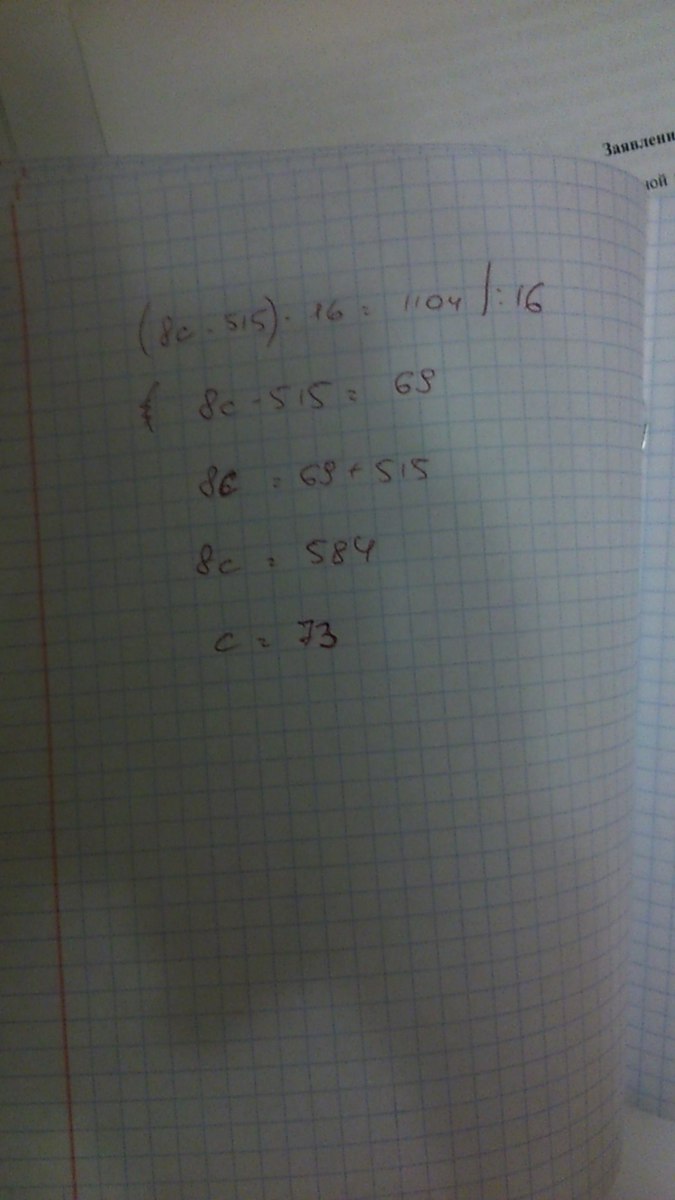 Заявлени
ной
(8c - 515) · 16 = 1104 | : 16
8c - 515 = 69
8c = 69 + 515
8c = 584
c = 73